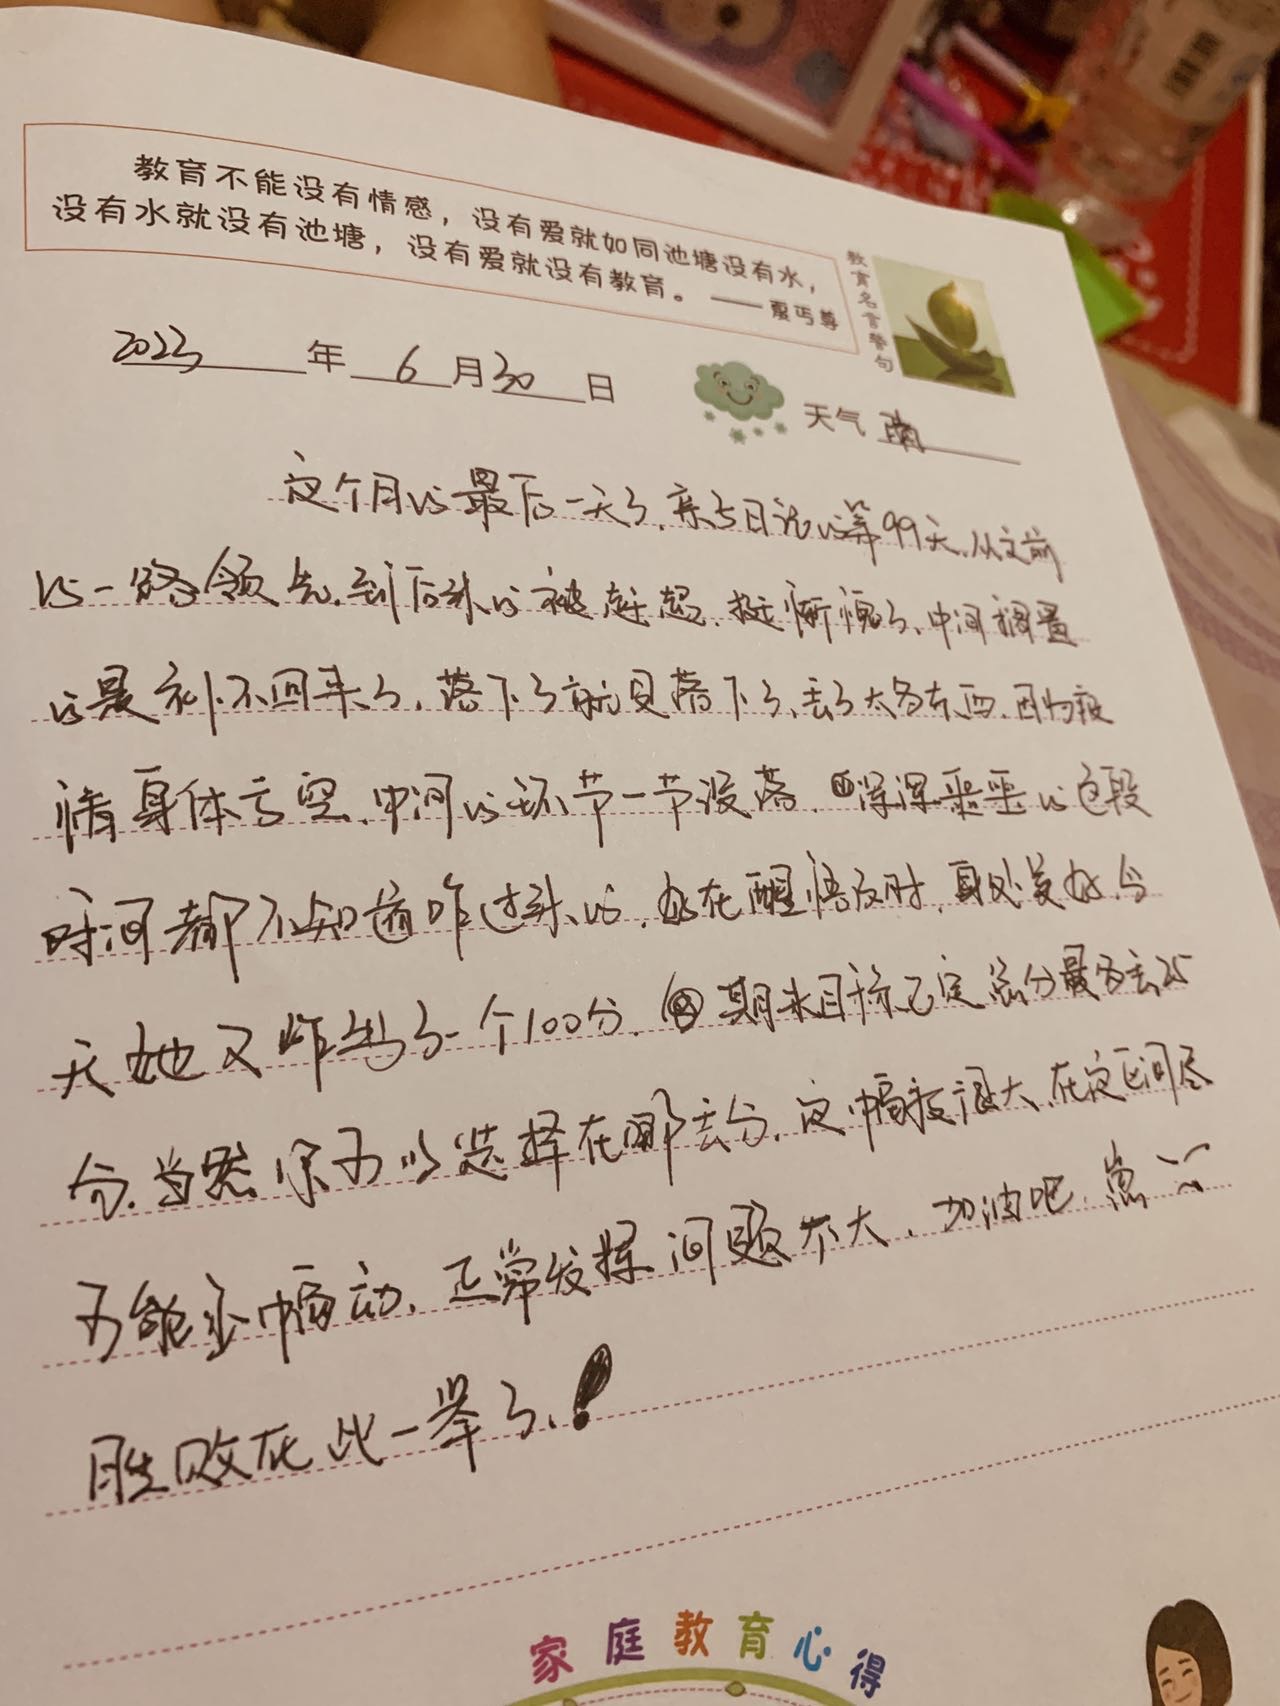 教育不能没有情感，没有爱就如同池塘没有水，
没有水就没有池塘，没有爱就没有教育。——夏丏尊
教育名言警句
2023年6月30日
天气 雨
这个月的最后一天了,亲子日记的第99天,从之前
的一路领先,到后来的被赶超,挺惭愧了,中间搁置
的是补不回来了,落下了就是落下了,丢了太多东西,因为疫
情身体亏空,中间的环节一节没落,深深恶恶的这段
时间都不知道咋过来的,好在醒悟及时,身处美好,今
天她又炸出了一个100分,期末目标已定总分最多丢25
分,当然你可以选择在哪丢分,这幅度很大,在这区间尽
可能小幅动,正常发挥问题不大,加油吧,崽
胜败在此一举了,!
家庭教育心得